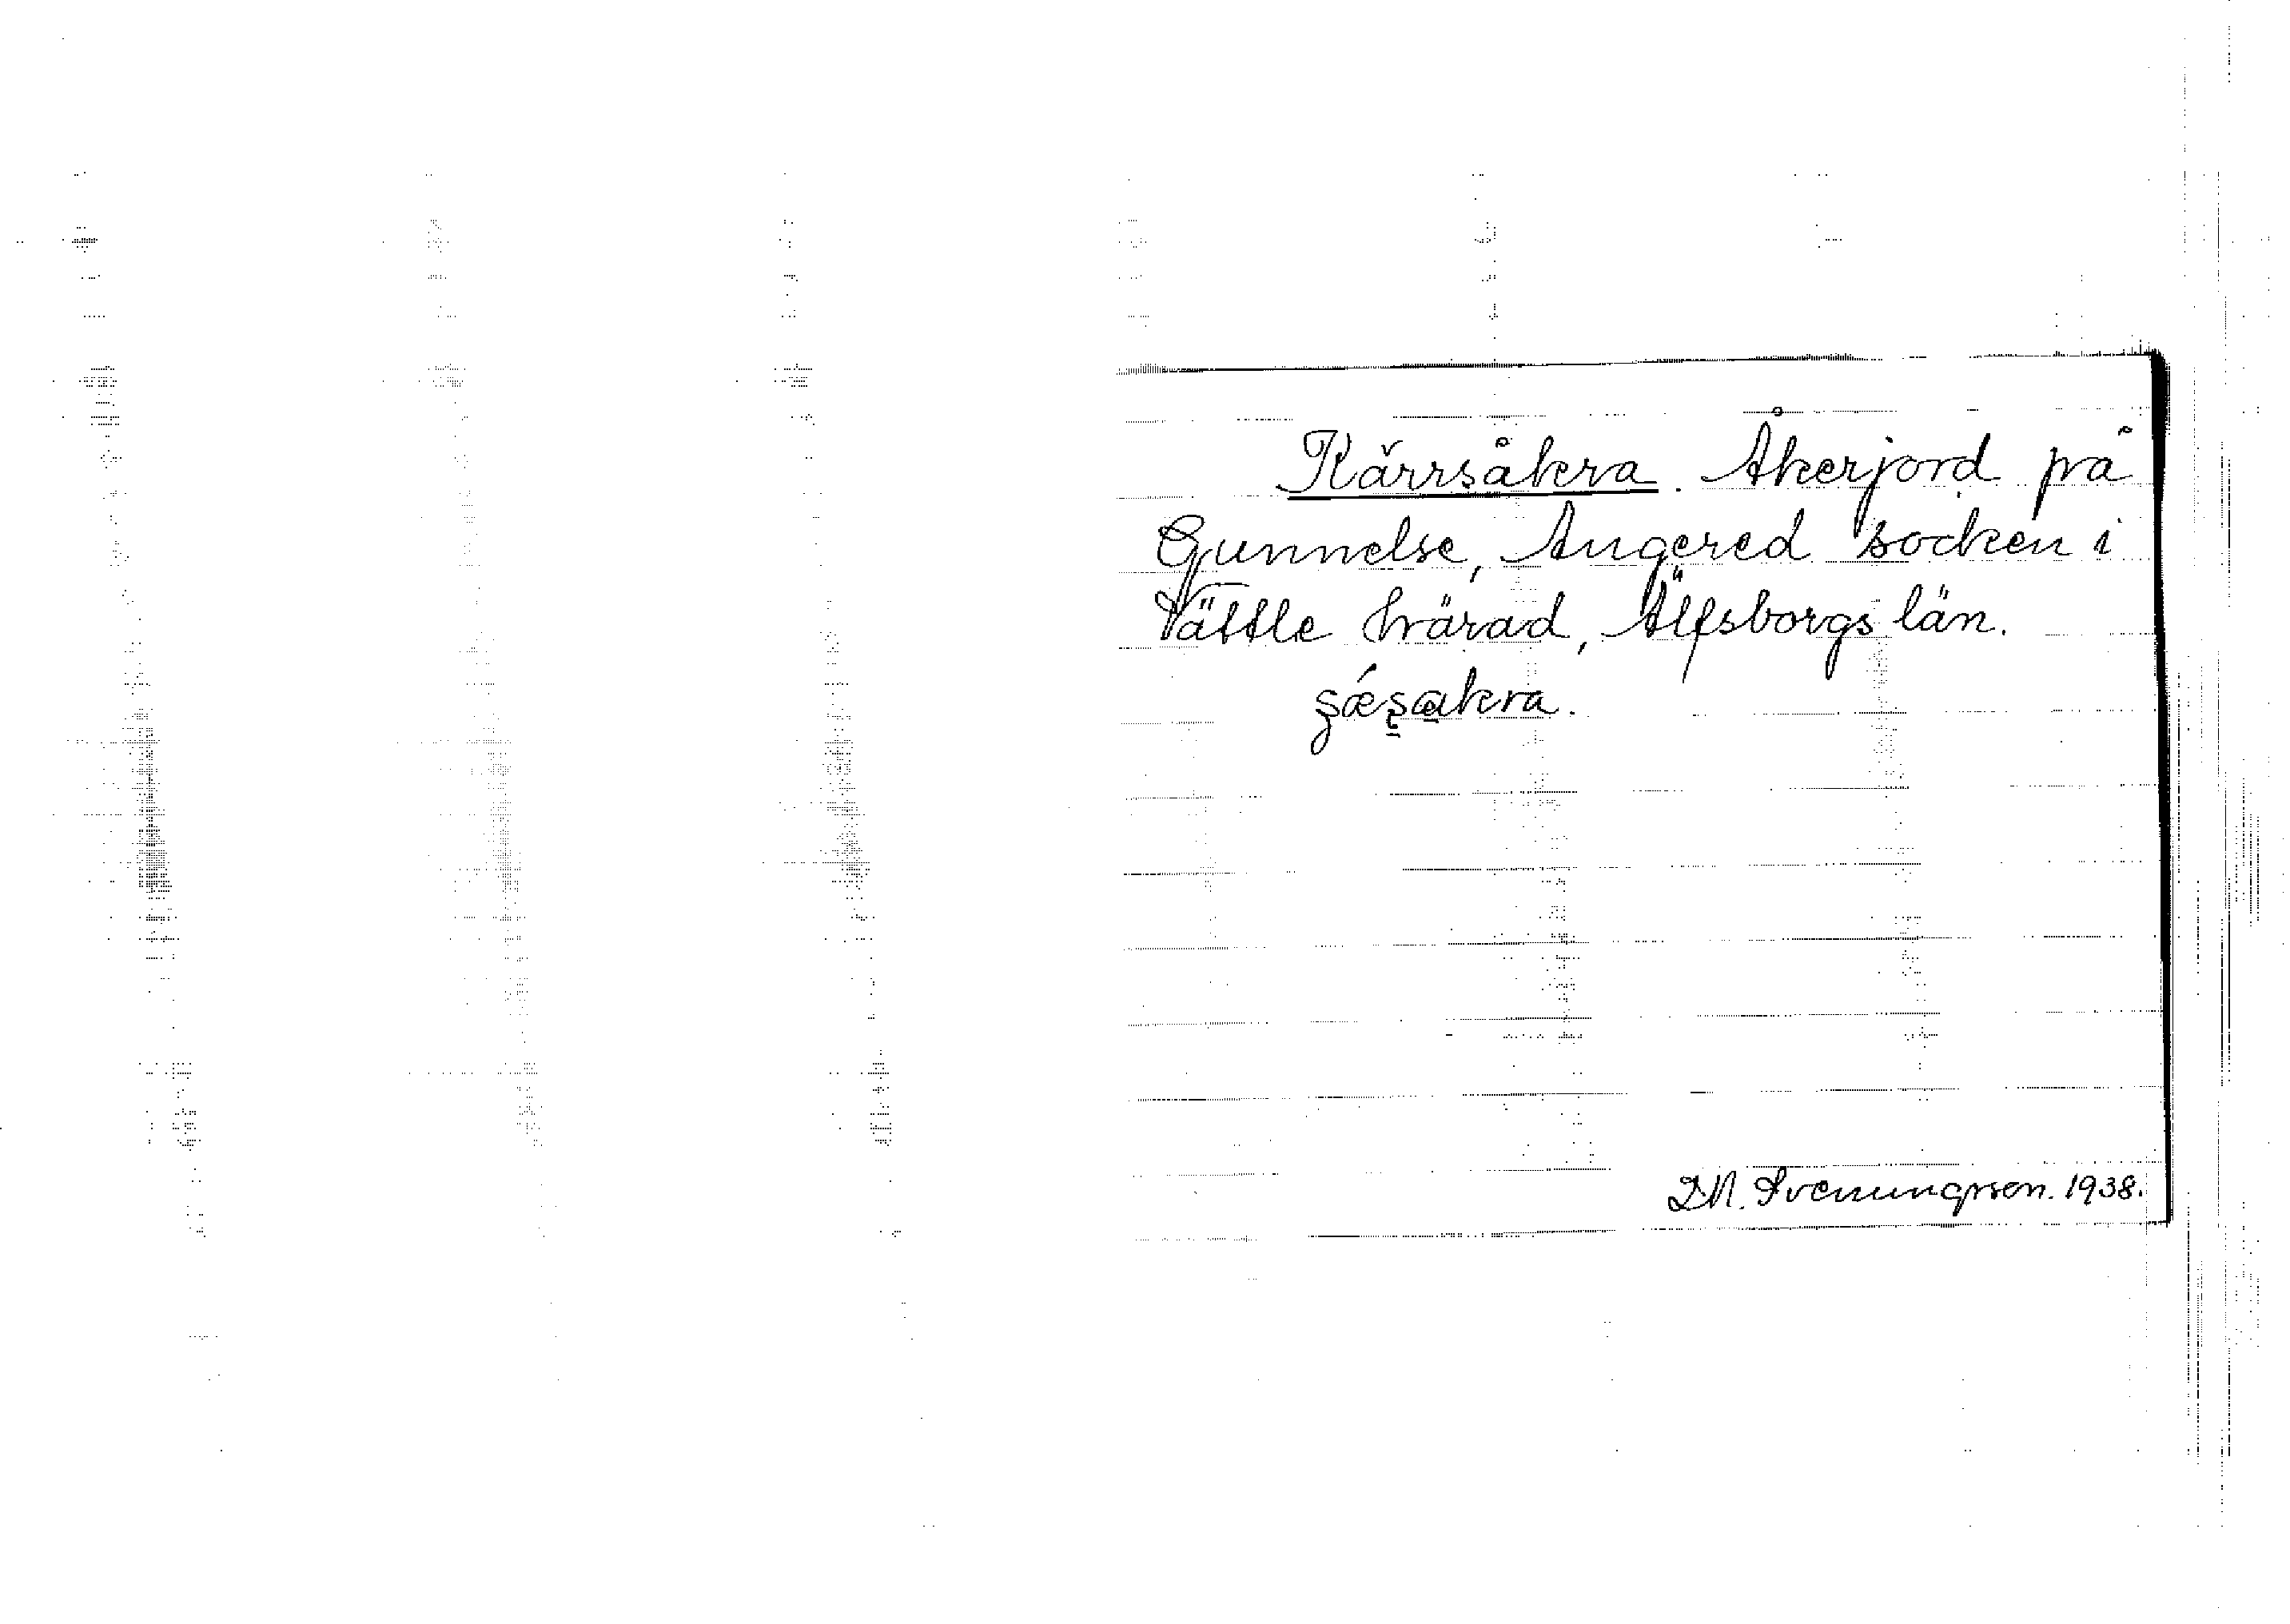 Kärrsåkra. Åkerjord på
Gunnelse, Angered socken i
Vättle härad, Älfsborgs län.
şǽşakra.
D.N. Svenungsson. 1938.